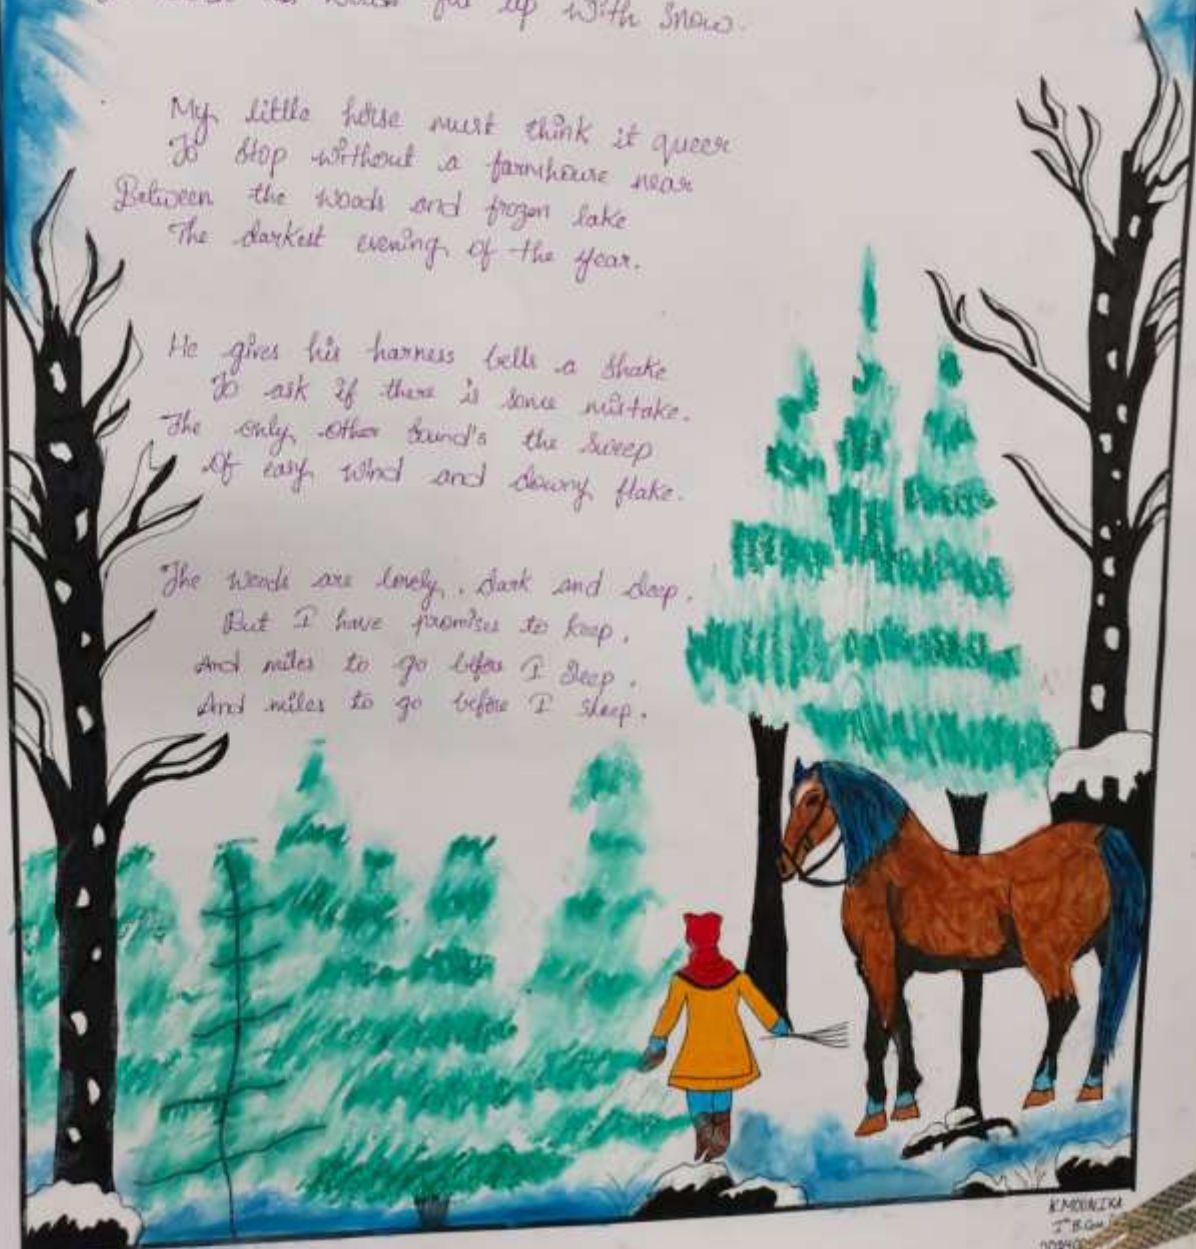 with snow.
My little horse must think it queer
To stop without a farmhouse near
Between the woods and frozen lake
The darkest evening of the year.
He gives his harness bells a shake
To ask if there is some mistake.
The only other sound's the sweep
Of easy wind and downy flake.
The woods are lovely, dark and deep.
But I have promises to keep,
And miles to go before I sleep,
And miles to go before I sleep.
K.MOUNIKA